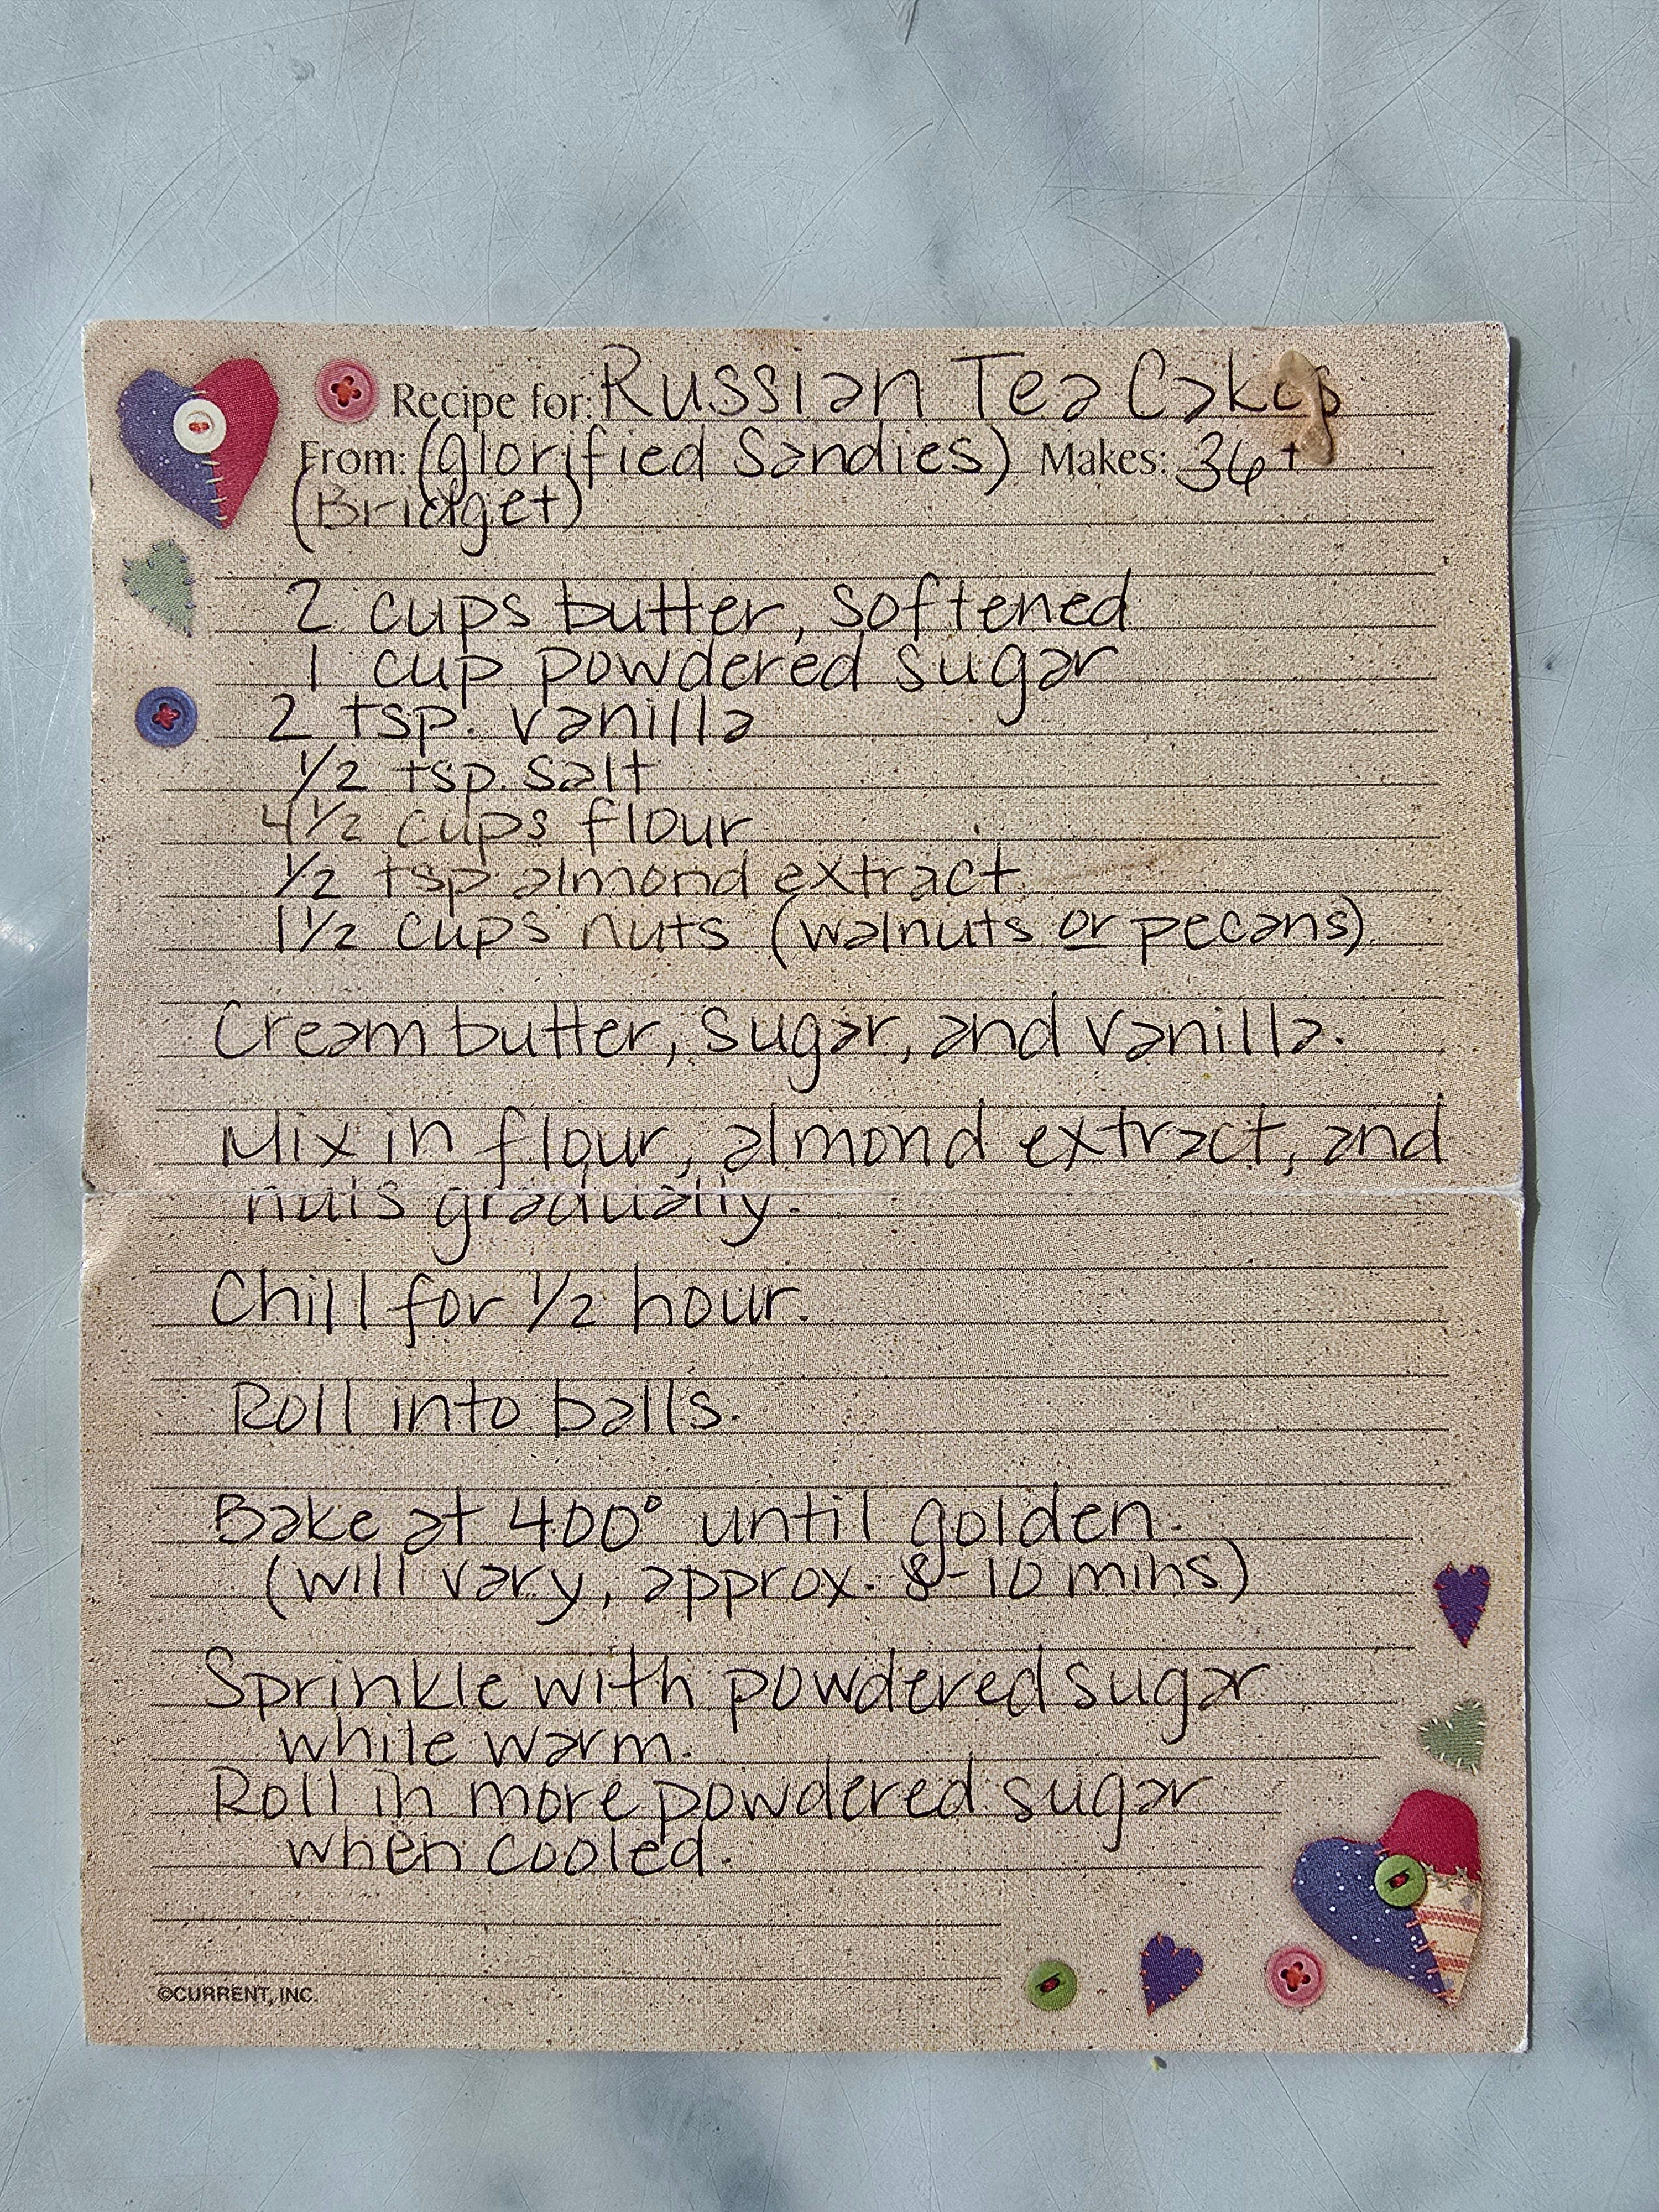 Recipe for: Russian Tea Cakes
From: (Glorified Sandies) Makes: 36+
(Bridget)
2 cups butter, softened
1 cup powdered sugar
2 tsp. vanilla
1/2 tsp. salt
4 1/2 cups flour
1/2 tsp almond extract
1 1/2 cups nuts (walnuts or pecans)
Cream butter, sugar, and vanilla.
Mix in flour, almond extract, and
nuts gradually.
Chill for 1/2 hour.
Roll into balls.
Bake at 400° until golden.
(will vary, approx. 8-10 mins)
Sprinkle with powdered sugar
while warm.
Roll in more powdered sugar
when cooled.
©CURRENT, INC.